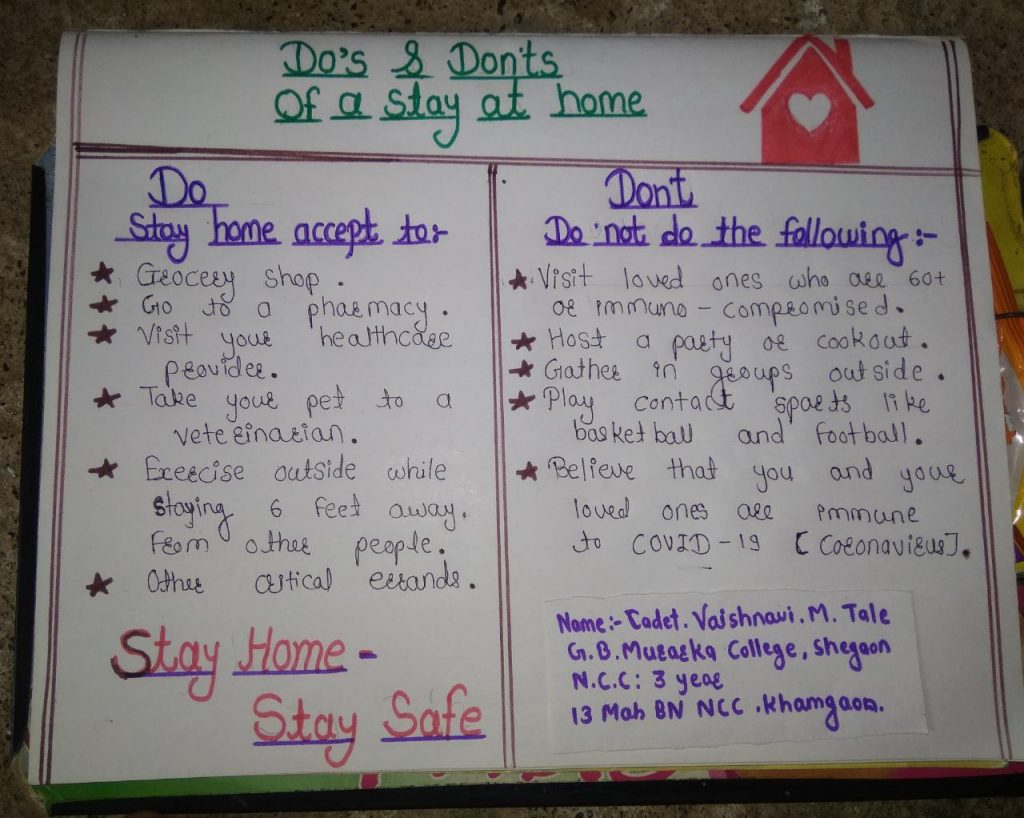 Do's & Dont's
Of a stay at home
Do
Stay home accept to:-
Grocery shop.
Go to a pharmacy.
Visit your healthcare
provider.
Take your pet to a
veterinarian.
Exercise outside while
staying 6 feet away.
from other people.
Other critical errands.
Stay Home -
Stay Safe
Dont
Do not do the following:-
Visit loved ones who are 60+
or immuno-compromised.
Host a party or cookout.
Gather in groups outside.
Play contact sports like
basketball and football.
Believe that you and your
loved ones are immune
to COVID-19 [Coronavirus].
Name:- Cadet. Vaishnavi. M. Tale
G.B. Murarka College, Shegaon
N.C.C: 3 year
13 Mah BN NCC .Khamgaon.